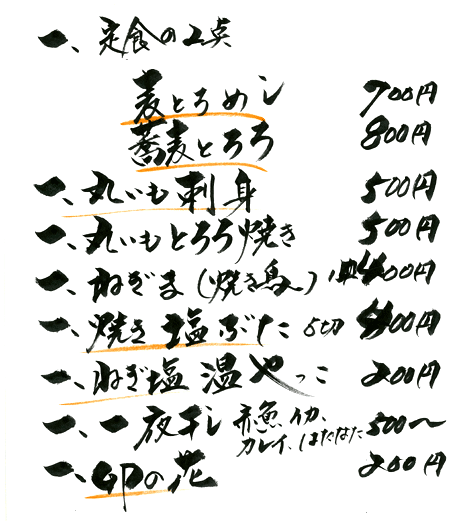 一、定食の2点
麦とろめし 700円
蕎麦とろろ 800円
一、丸いも刺身 500円
一、丸いもとろろ焼き 500円
一、ねぎま(焼き鳥) 400円
一、焼き塩ぶた 5切 400円
一、ねぎ塩温やっこ 200円
一、一夜干し 赤魚、イカ、カレイ、はたはた 500〜
一、卯の花 200円